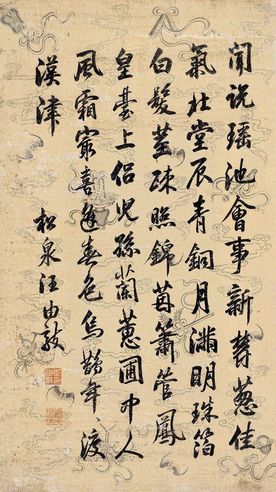 聞説瑶池會事新葱佳
氣北堂辰青銅月滿明珠箔
白髮莖疎照錦茵簫管鳳
皇臺上侶兒孫蘭蕙圃中人
風霜㝡喜春色烏鵲年〻渡
漢津
松泉汪由敦